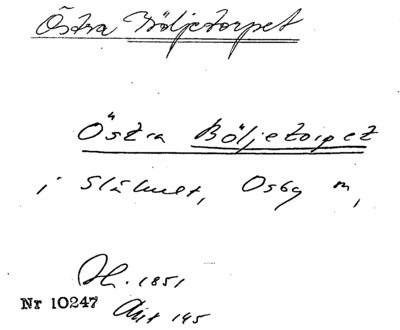 Östra Böljetorpet
Östra Böljetorpet
i Slähult, Osby m,
Hr. 1851
Nr 10247
Akt 145